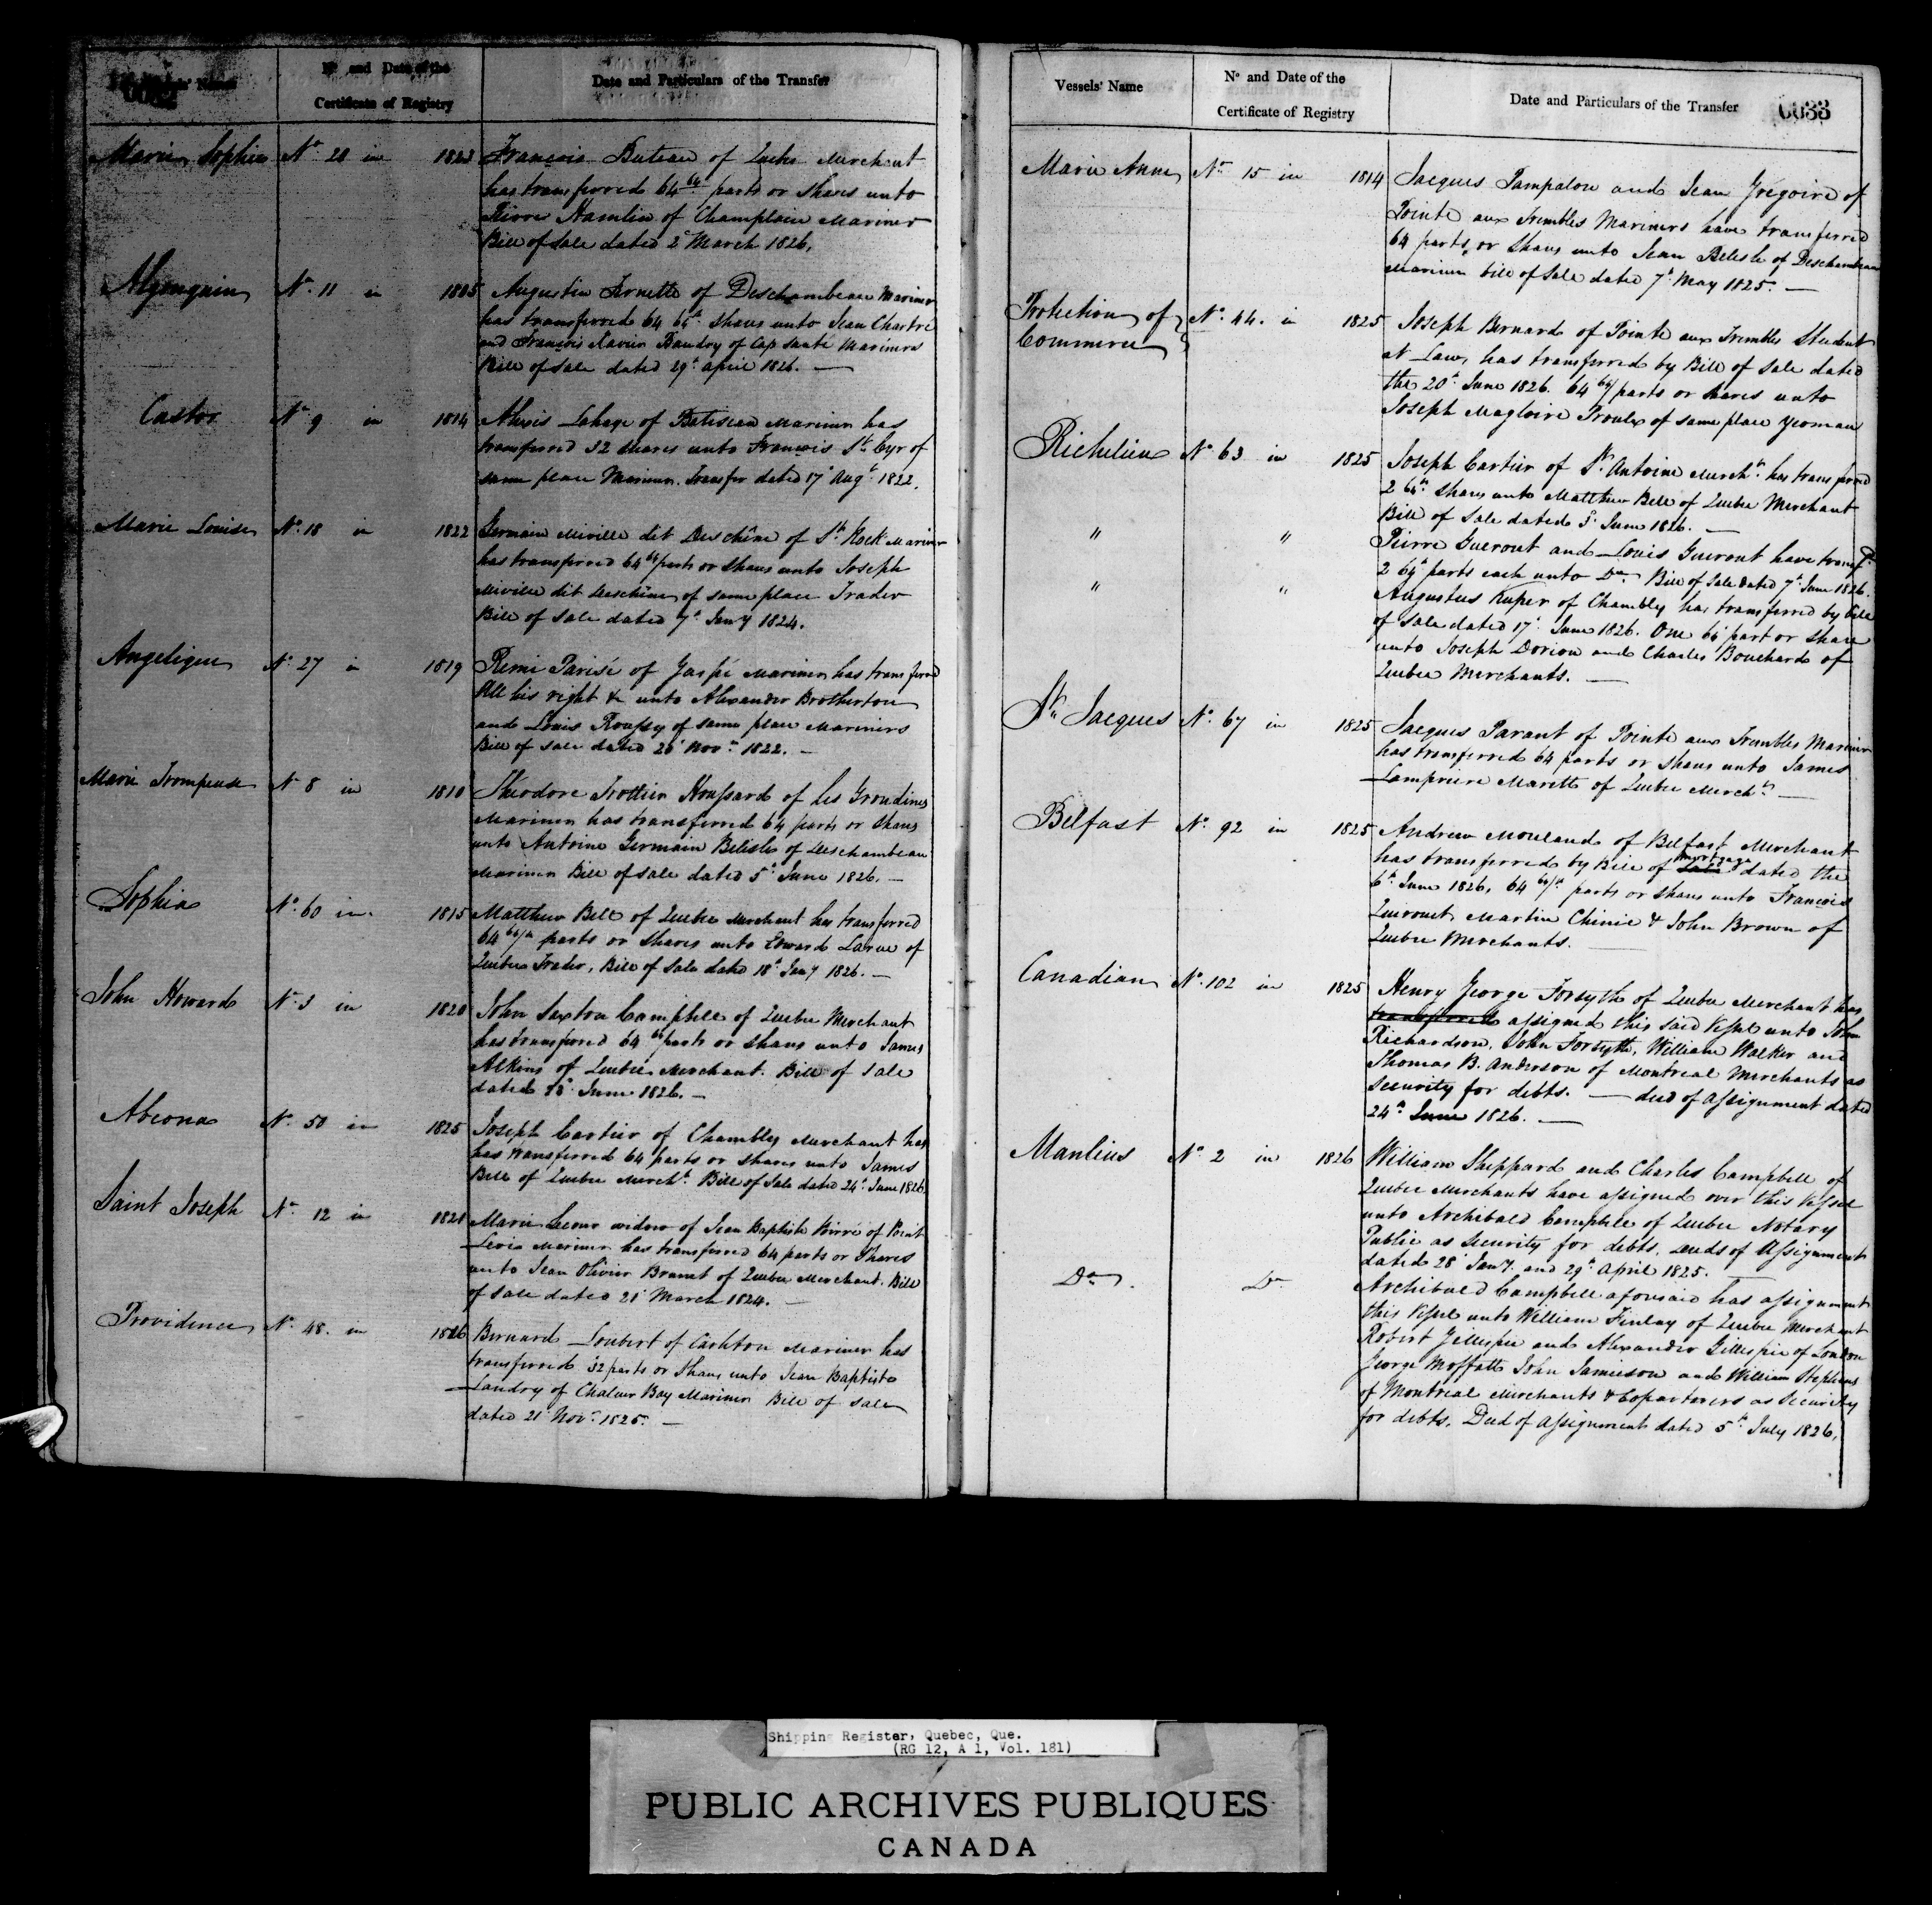 Vessels' Name
No and Date of the
Certificate of Registry
Date and Particulars of the Transfer
Marie Sophie No 28 in 1823 François Buteau of Quebec Merchant
has transferred 64 64 parts or Shares unto
Pierre Hamlin of Champlain Mariner
Bill of Sale dated 2d March 1826.
Algonquin No 11 in 1805 Augustin Arnette of Deschambeau Mariner
has transferred 64 64th Shares unto Jean Chartré
and François Xavier Baudry of Cap Santé Mariners
Bill of Sale dated 29th april 1826. —
Castor No 9 in 1814 Alexis Lahaye of Batiscan Mariner has
transferred 32 shares unto François St Cyr of
same place Mariner. Transfer dated 17th Augt 1822.
Marie Louise No 18 in 1822 Germain Miville dit Deschêne of St Rock Mariner
has transferred 64 64 parts or Shares unto Joseph
Miville dit Deschêne of same place Trader
Bill of Sale dated 7th Jany 1824.
Angelique No 27 in 1819 Remi Parisé of Gaspé Mariner has transferred
All his right & unto Alexander Brotherton
and Louis Roussy of same place Mariners
Bill of Sale dated Novr 1822. —
Marie Trompeuse No 8 in 1810 Théodore Trottier Houssard of les Grondines
Mariner has transferred 64 parts or Shares
unto Antoine Germain Belisle of Deschambeau
Mariner Bill of Sale dated 5th June 1826. —
Sophia No 60 in 1815 Matthew Bell of Quebec Merchant has transferred
64 64/th parts or Shares unto Edward Larue of
Quebec Trader, Bill of Sale dated 18th Jany 1826. —
John Howard No 3 in 1820 John Saxton Campbell of Quebec Merchant
has transferred 64 64 parts or Shares unto James
Atkins of Quebec Merchant. Bill of Sale
dated June 1826. —
Abeona No 50 in 1825 Joseph Cartier of Chambly Merchant has
has transferred 64 parts or shares unto James
Bell of Quebec Mercht. Bill of Sale dated 24th June 1826
Saint Joseph No 12 in 1821 Marie Lecour widow of Jean Baptiste Poirré of Point
Levia Mariner has transferred 64 parts or Shares
unto Jean Olivier Brunet of Quebec Merchant. Bill
of Sale dated 21t March 1824. —
Providence No 48. in 1826 Bernard Loubert of Carleton Mariner has
transferred 32 parts or Shares unto Jean Baptiste
Landry of Chaleur Bay Mariner Bill of Sale
dated 21t Novr 1825. —
Vessels' Name
No and Date of the
Certificate of Registry
Date and Particulars of the Transfer
0033
Marie Anne No 15 in 1814 Jacques Pampalon and Jean Gregoire of
Pointe aux Trembles Mariners have transferred
64 parts or Shares unto Jean Belisle of Deschambeau
Mariner bill of Sale dated 7th May 1825. —
Protection of No 44. in 1825 Joseph Bernard of Pointe aux Trembles Student
Commerce at Law, has transferred by Bill of Sale dated
the 20th June 1826. 64 64/ parts or shares unto
Joseph Magloire Proulx of same place yeoman
Richelieu No 63 in 1825 Joseph Cartier of St Antoine Mercht has transferred
2 64th Shares unto Matthew Bell of Quebec Merchant
Bill of Sale dated 3d June 1826. —
" " Pierre Guerout and Louis Guerout have transfd
2 64th parts each unto Do Bill of Sale dated 7th June 1826.
" " Augustus Kuper of Chambly has transferred by bill
of Sale dated 17th June 1826. One 64 part or share
unto Joseph Dorion and Charles Bouchard of
Quebec Merchants. —
St Jacques No 67 in 1825 Jacques Parant of Pointe aux Trembles Mariner
has transferred 64 parts or Shares unto James
Lampriere Marett of Quebec Mercht —
Belfast No 92 in 1825 Andrew Mouland of Belfast Merchant
has transferred by Bill of Sale mortgage dated the
6th June 1826, 64 64/th parts or Shares unto François
Quirouet Martin Chinic & John Brown of
Quebec Merchants. —
Canadian No 102 in 1825 Henry George Forsyth of Quebec Merchant has
transferred assigned this said Vessel unto John
Richardson, John Forsyth, William Walker and
Thomas B. Anderson of Montreal Merchants as
Security for debts. — deed of Assignment dated
24th June 1826. —
Manlius No 2 in 1826 William Sheppard and Charles Campbell of
Quebec Merchants have assigned over this Vessel
unto Archibald Campbell of Quebec Notary
Public as Security for debts. Deeds of Assignment
dated 28th Jany. and 29th April 1825. —
Do. Do Archibald Campbell aforesaid has assignment
this Vessel unto William Finlay of Quebec Merchant
Robert Gillespie and Alexander Gillespie of London
George Moffatt John Jamieson and William Stephens
of Montreal Merchants & Copartners as Security
for debts. Deed of Assignment dated 5th July 1826.
Shipping Register, Quebec, Que.
(RG 12, A 1, Vol. 181)
PUBLIC ARCHIVES PUBLIQUES
CANADA